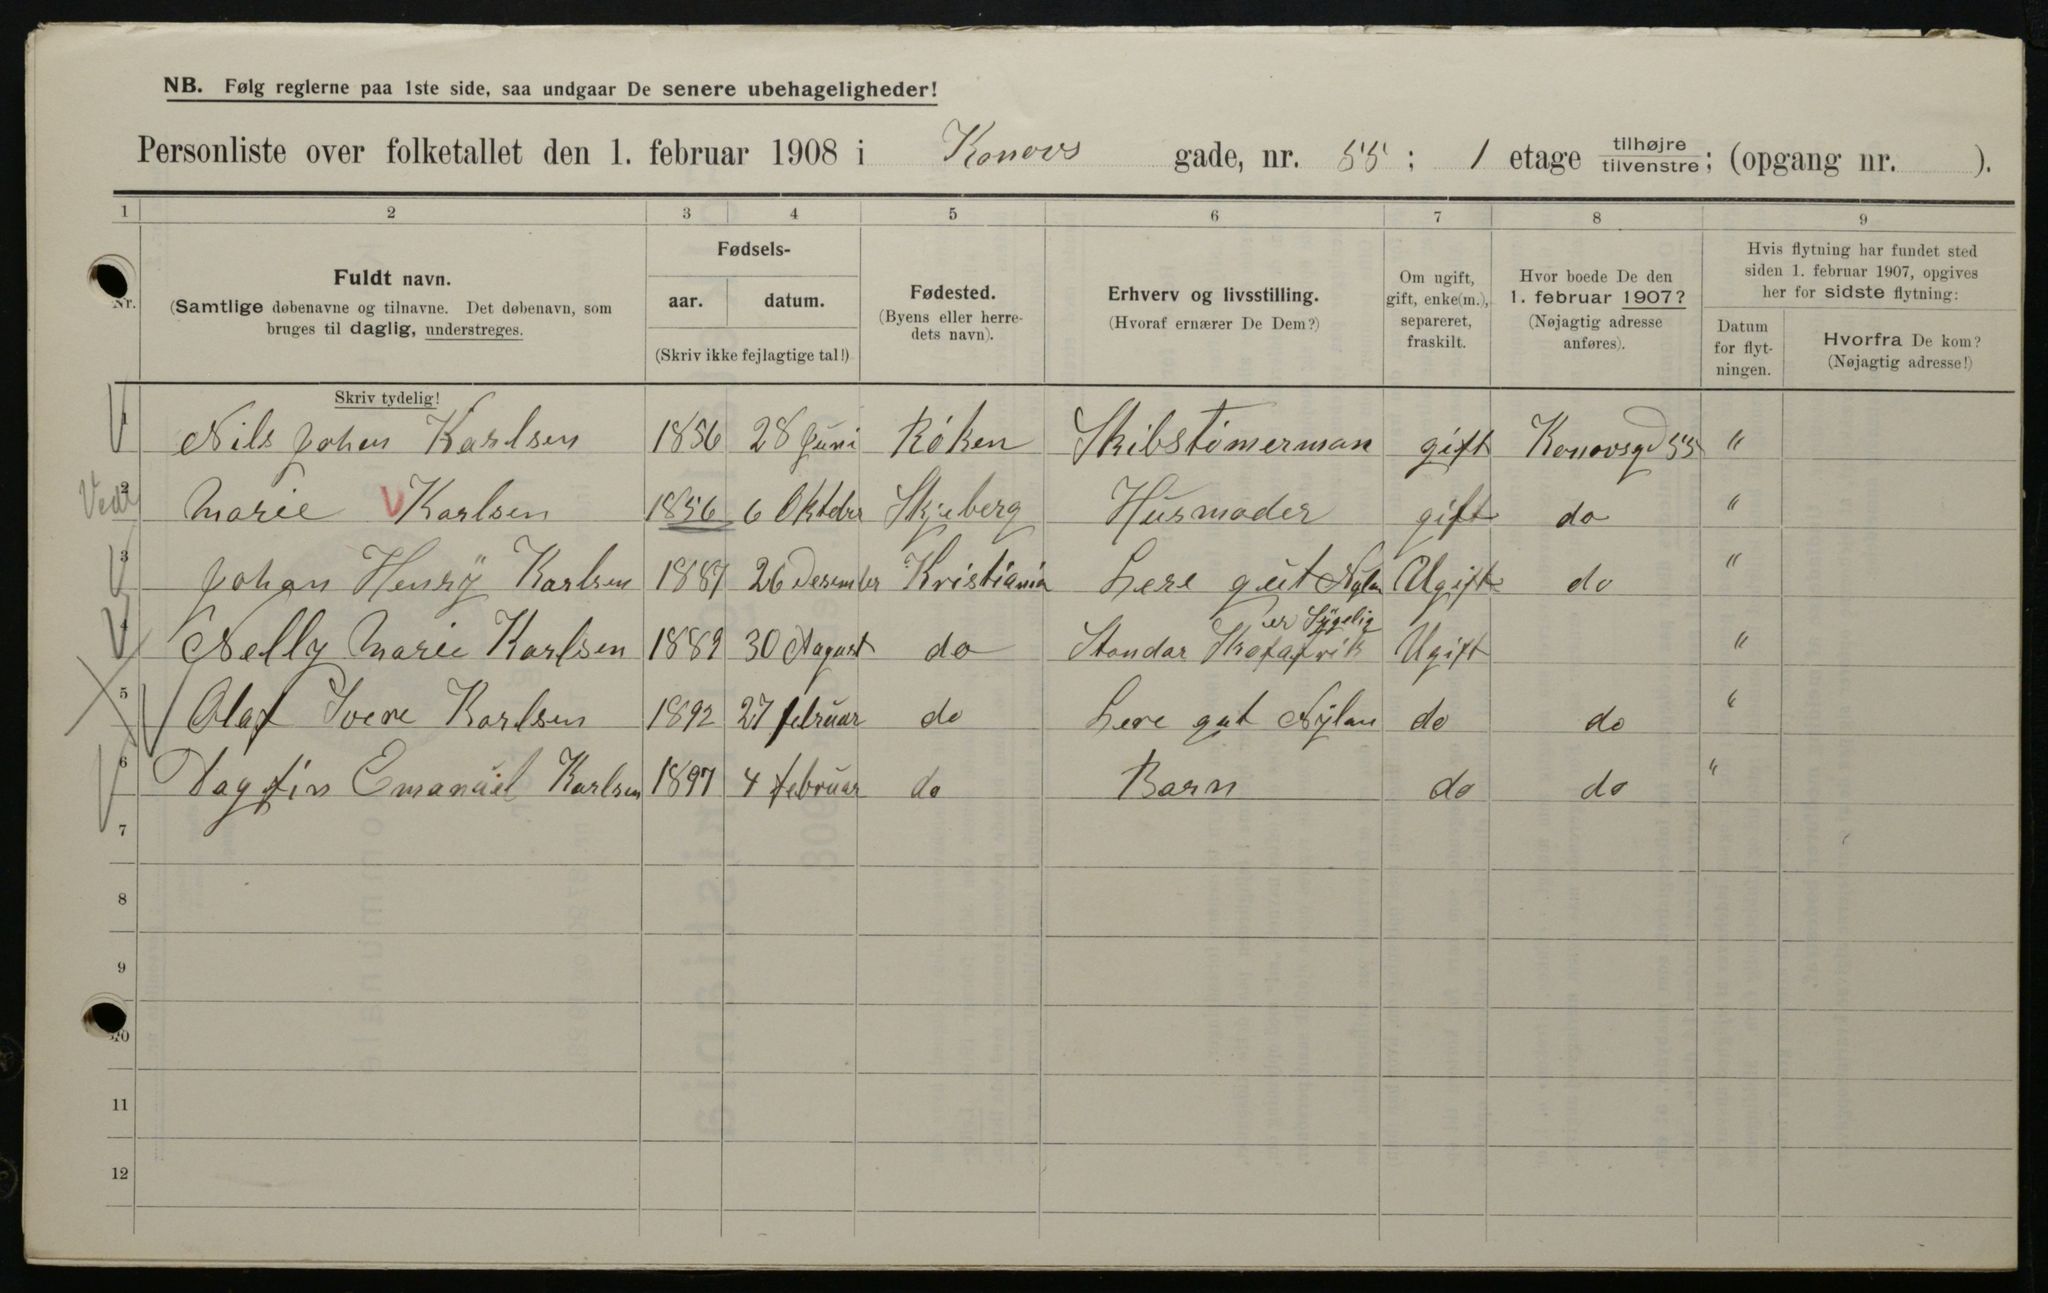 NB. Følg reglerne paa 1ste side, saa undgaar De senere ubehageligheder!
Personliste over folketallet den 1. februar 1908 i Konovs gade, nr. 55; 1 etage tilhøjre tilvenstre; (opgang nr. ).
1 2 3 4 5 6 7 8 9
Nr.
Fuldt navn.
(Samtlige døbenavne og tilnavne. Det døbenavn, som
bruges til daglig, understreges.
Skriv tydelig!
Fødsels-
aar. datum.
(Skriv ikke fejlagtige tal!)
Fødested.
(Byens eller herre-
dets navn).
Erhverv og livsstilling.
(Hvoraf ernærer De Dem?)
Om ugift,
gift, enke(m.),
separeret,
fraskilt.
Hvor boede De den
1. februar 1907?
(Nøjagtig adresse
anføres).
Hvis flytning har fundet sted
siden 1. februar 1907, opgives
her for sidste flytning:
Datum
for flyt-
ningen.
Hvorfra De kom?
(Nøjagtig adresse!)
1 Nils Johan Karlsen 1856 28 Juni Røken Skibstømerman gift Konovsgd 55 "
2 Marie Karlsen 1856 6 Oktober Skjeberg Husmoder gift do "
3 Johan Henrÿ Karlsen 1887 26 Desember Kristiania Lere gut Nylan Ugift do "
er Sÿgelig
4 Nelly Marie Karlsen 1889 30 Aagust do Standar Skofafrik Ugift "
5 Olaf Sverre Karlsen 1892 27 februar do Lere gut Nÿlan do do "
6 Dagfin Emanuel Karlsen 1897 4 februar do Barn do do "
7
8
9
10
11
12